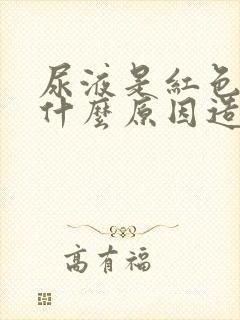 尿液是紅色
什麼原因造
高有福